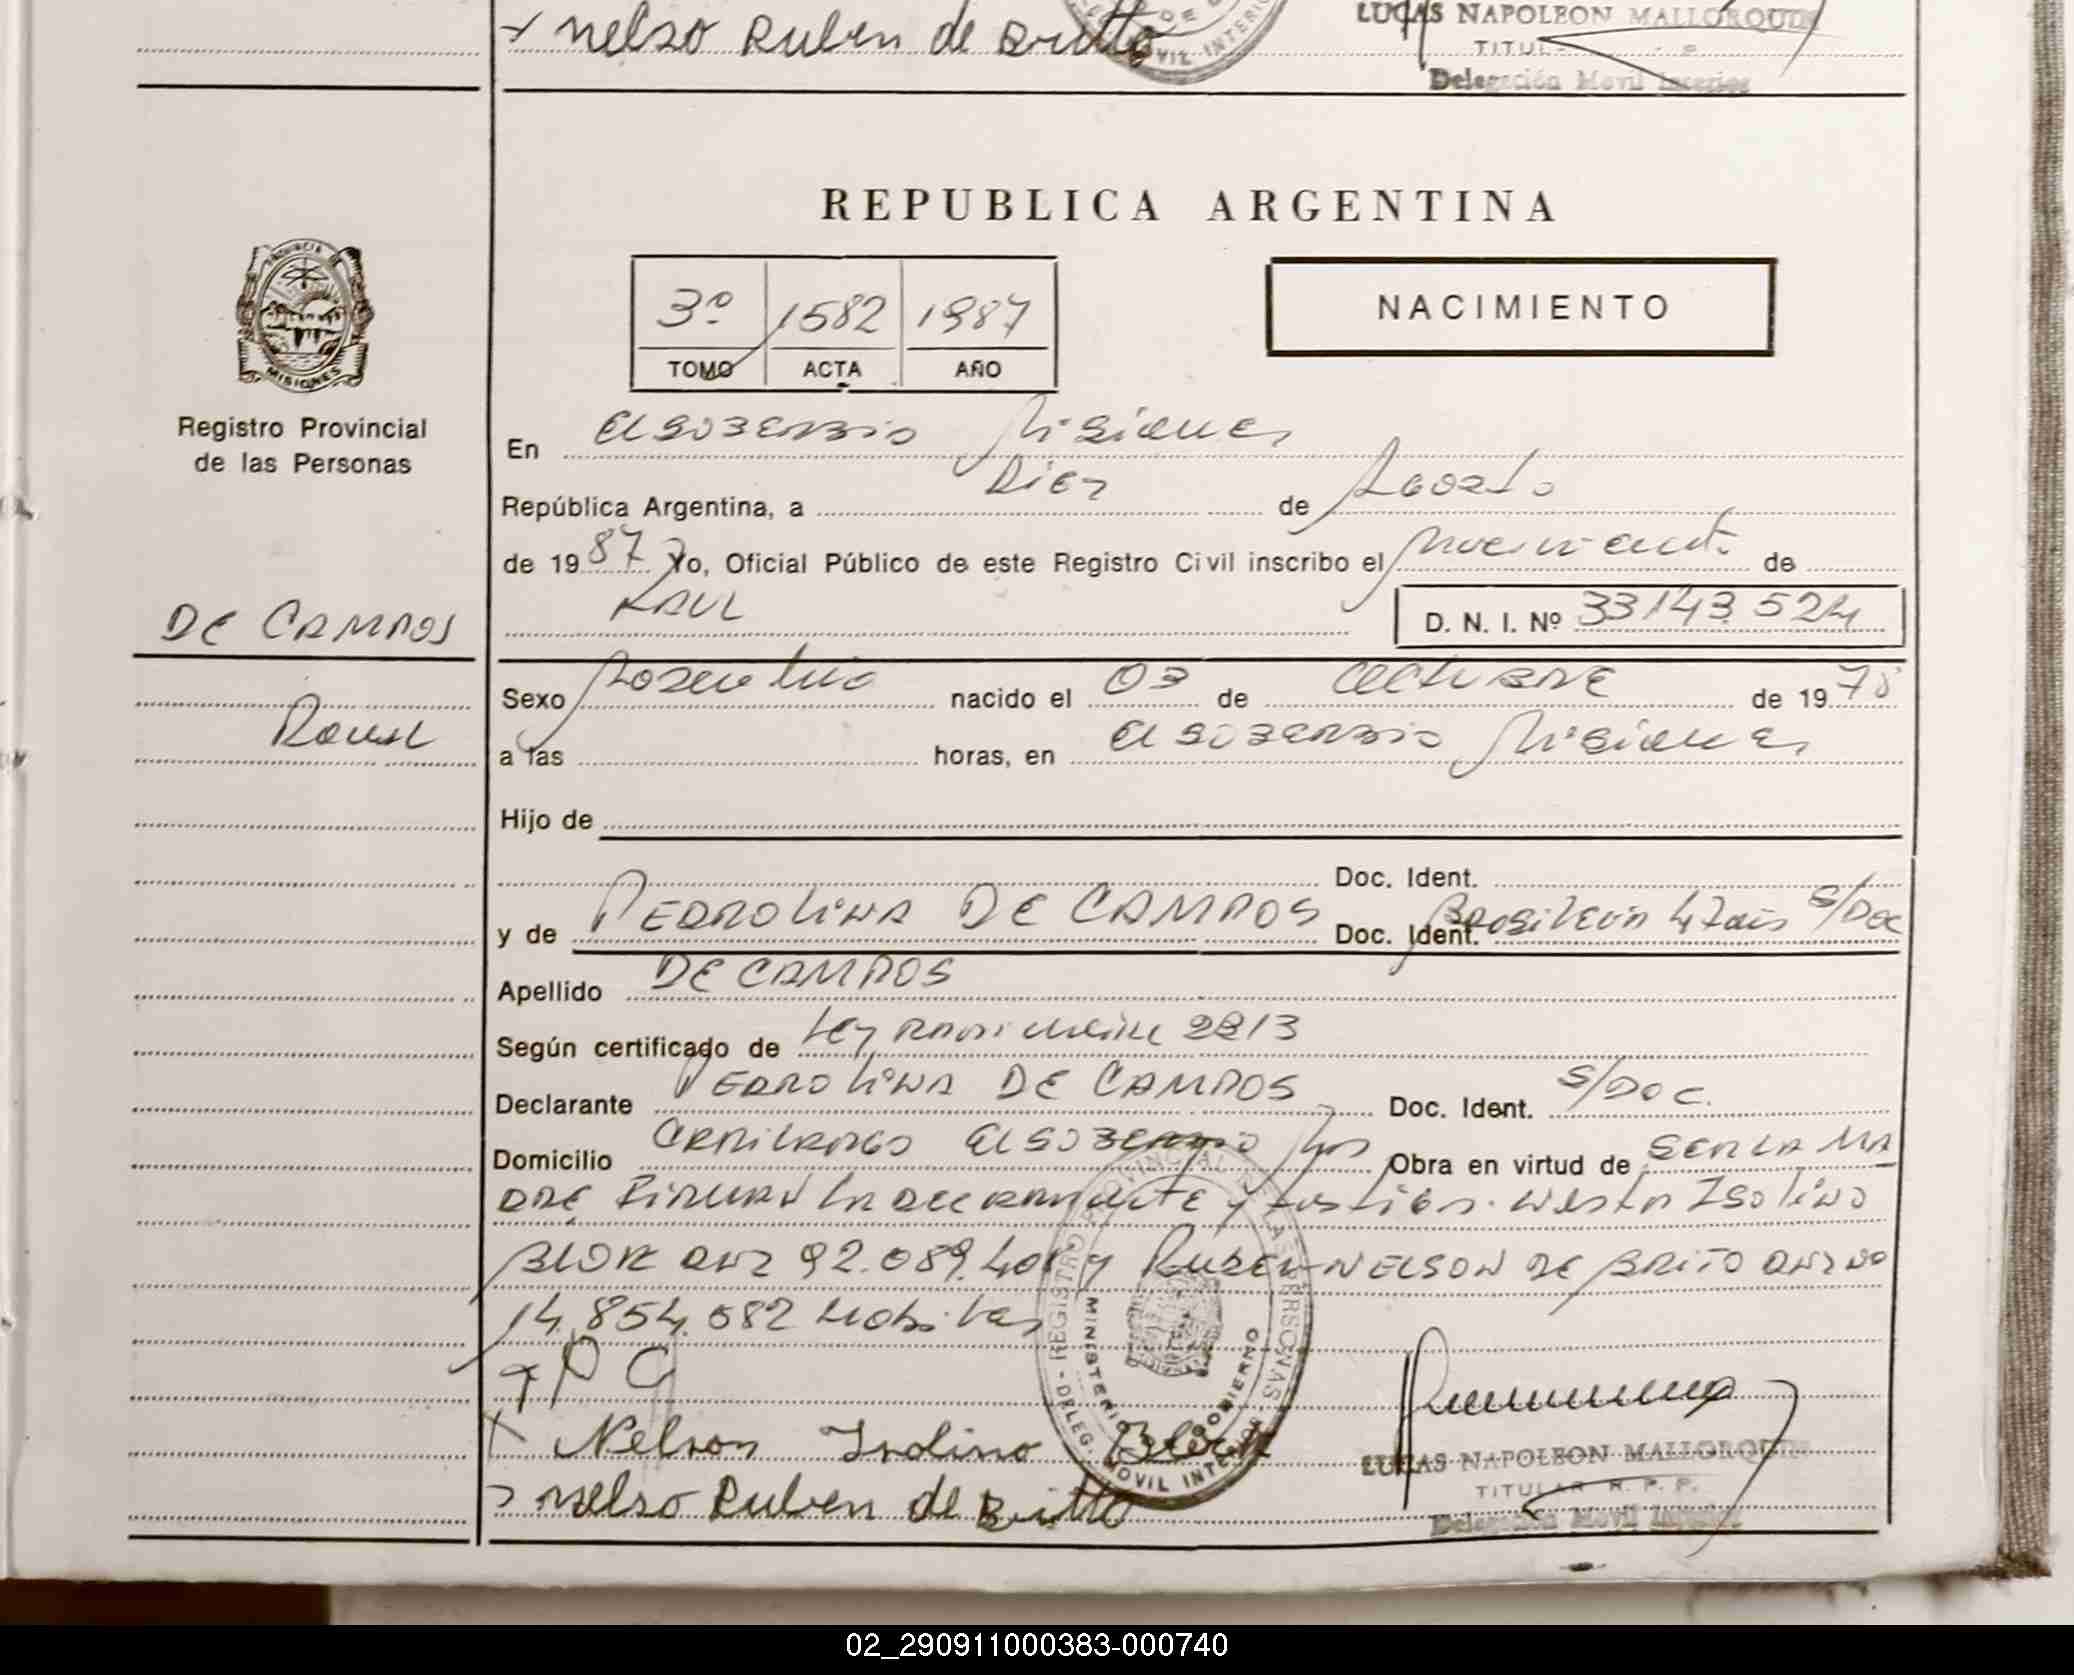 Nelso Ruben de Britto
LUCAS NAPOLEON MALLORQUIN
TITUL
Delegación Movil Interior
REPUBLICA ARGENTINA
3º 1582 1987
TOMO ACTA AÑO
NACIMIENTO
PROVINCIA DE MISIONES
Registro Provincial
de las Personas
En El Soberbio Misiones
República Argentina, a Diez de Agosto
de 1987 Yo, Oficial Público de este Registro Civil inscribo el nacimiento de
RAUL
D. N. I. Nº 33.143.524
DE CAMPOS
Sexo Masculino nacido el 03 de Octubre de 1978
Raul
a las horas, en El Soberbio Misiones
Hijo de
Doc. Ident.
y de PEDROLINA DE CAMPOS Doc. Ident. Brasilera 47 años S/Doc
Apellido DE CAMPOS
Según certificado de Ley 2213
Declarante PEDROLINA DE CAMPOS Doc. Ident. S/DOC.
Domicilio El Soberbio Mns Obra en virtud de SER LA MA
DRE FIRMAN LA DECLARANTE y testigos. Isolino
BLOK DNI 92.089.401 y RUBEN NELSON DE BRITO DNI Nº
14.854.082
P C
X Nelson Isolino Block
Nelso Ruben de Britto
REGISTRO PROVINCIAL DE LAS PERSONAS
MINISTERIO GOBIERNO
DELEG. MOVIL INTERIOR
LUCAS NAPOLEON MALLORQUIN
TITULAR R. P. P.
Delegación Movil Interior
02_290911000383-000740